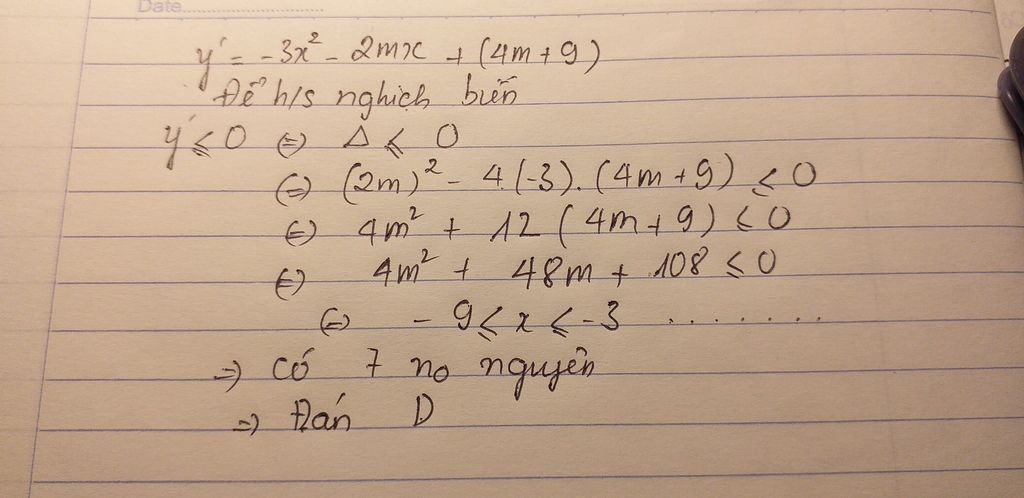 Date
y' = -3x² - 2mx + (4m+9)
Để h/s nghịch biến
y' ≤ 0 (=) Δ ≤ 0
(=) (2m)² - 4.(-3).(4m+9) ≤ 0
(=) 4m² + 12(4m+9) ≤ 0
(=) 4m² + 48m + 108 ≤ 0
(=) -9 ≤ x ≤ -3 ........
=) có 7 no nguyên
=) Đán D